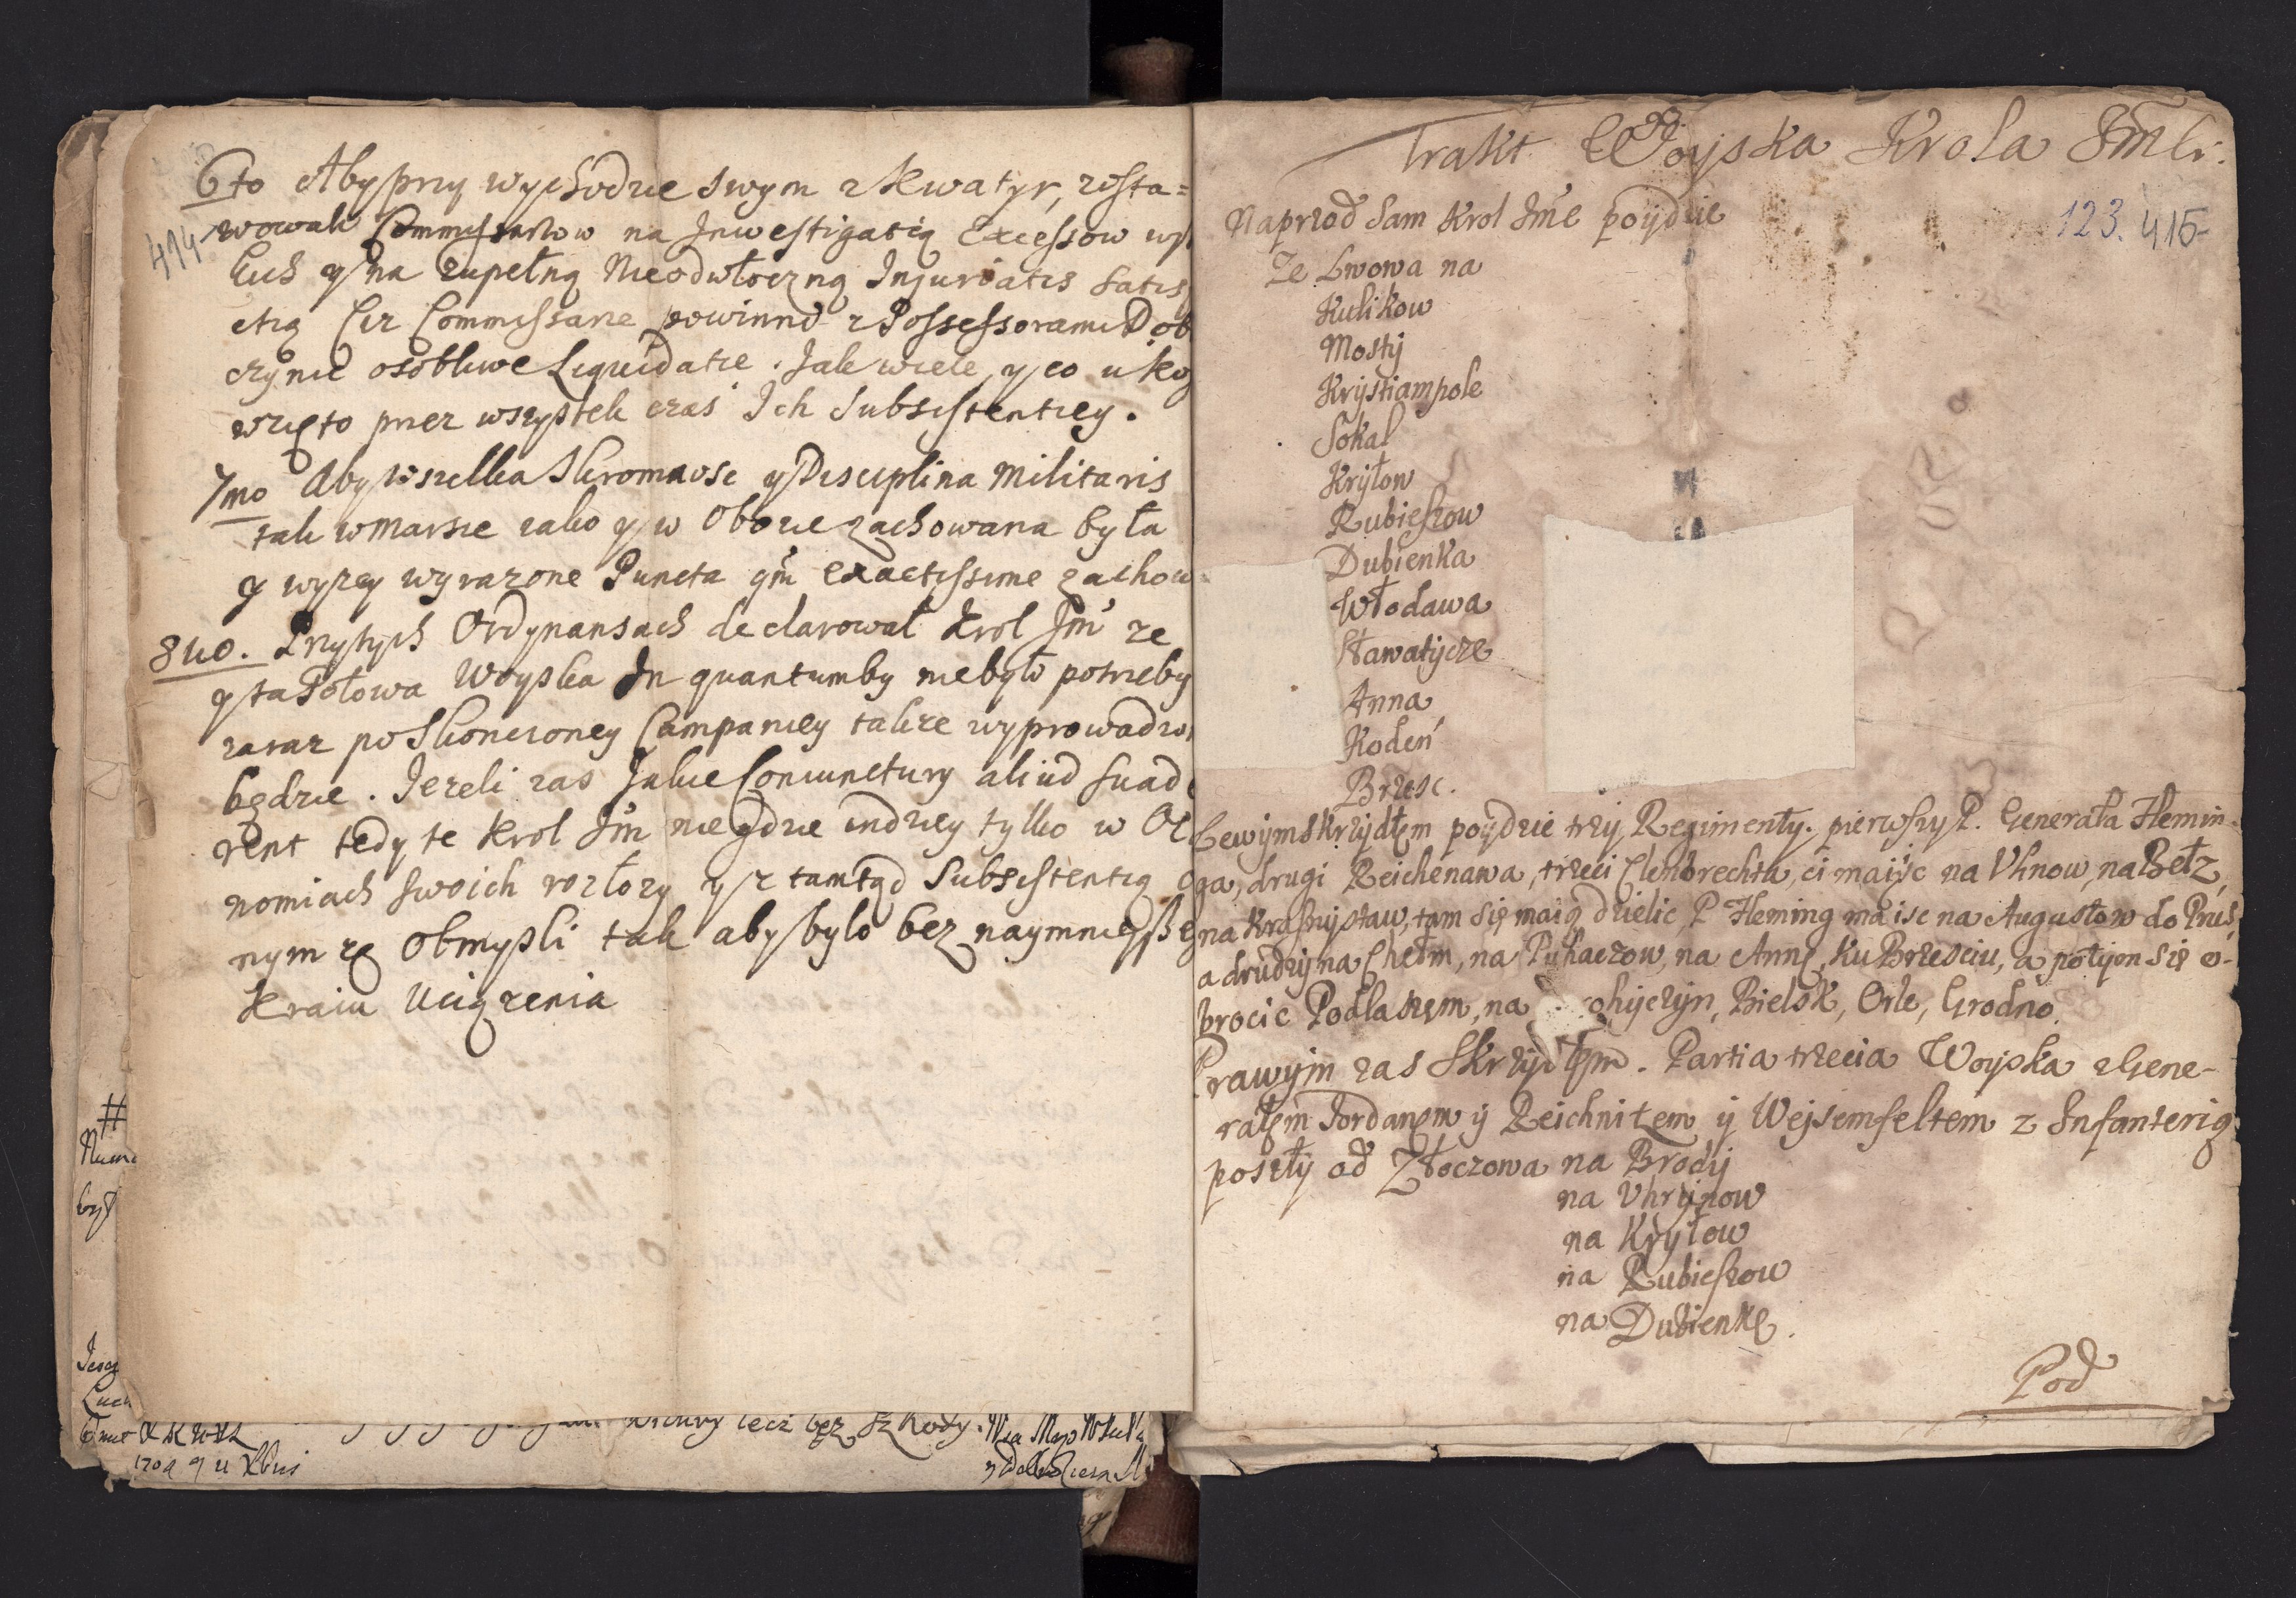 6to Aby przy wychodzie swym z Kwatyr, zosta=
wowali Commissarzow na Inwestigatią Excessow
414
y na zupełną Nieodwłoczną Injuriatis Satis
ctią Ciz Commissarze powinni z Possessorami Dob
czynic osobliwe Liquidatie. Jak wiele, y co u ko
wzięto przez wszystek czas Ich Subsistentiey.
7mo Aby wszelka Skromnosc y Disciplina Militaris
tak w Marszie iako y w Obozie zachowana była
y wyzey wyrazone Puncta exactissime zachow
8uo. Przytych Ordynansach declarował Krol Jm ze
y ta Połowa Woyska In quantumby niebyło potrzeby
zaraz po Skonczoney Campaniey takze wyprowadzo
będzie. Jezeli zas Jakie Coniunctury aliud suad
rent tedy te Krol Jm nie gdzie indziey tylko w
nomiach swoich rozłozy y z tamtąd Subsistentią
nym ze obmysli tak aby było bez naymnieysze
Kraiu Uciązenia
bez Szkody.
Trakt Woyska Krola Jmsci.
123. 415
Naprzod Sam Krol Jmc poydzie
Ze Lwowa na
Kulikow
Mosty
Krystiampole
Sokal
Kryłow
Rubieszow
Dubienka
Włodawa
Sławatycze
Anna
Kodeń
Brzesc.
Lewym skrzydłem poydzie trzy Regimenty. pierwszy P. Generała Flemin-
ga, drugi Reichenawa, trzeci Clembrechta, ci maią isc na Vhnow, na Bełz,
na Krasnystaw, tam się maią dzielic P. Fleming ma isc na Augustow do Prus,
a drudzy na Chełm, na Puhaczow, na Annę, ku Brzesciu, a potym się o-
brocic Podlaszem, na ohyczyn, Bielsk, Orle, Grodno.
Prawym zas Skrzydłem. Partia trzecia Woyska z Gene-
rałem Jordanem y Reichnitzem y Wejsemfeltem z Infanterią
poszły od Złoczowa na Brody
na Vhrynow
na Kryłow
na Rubieszow
na Dubienkę.
Pod